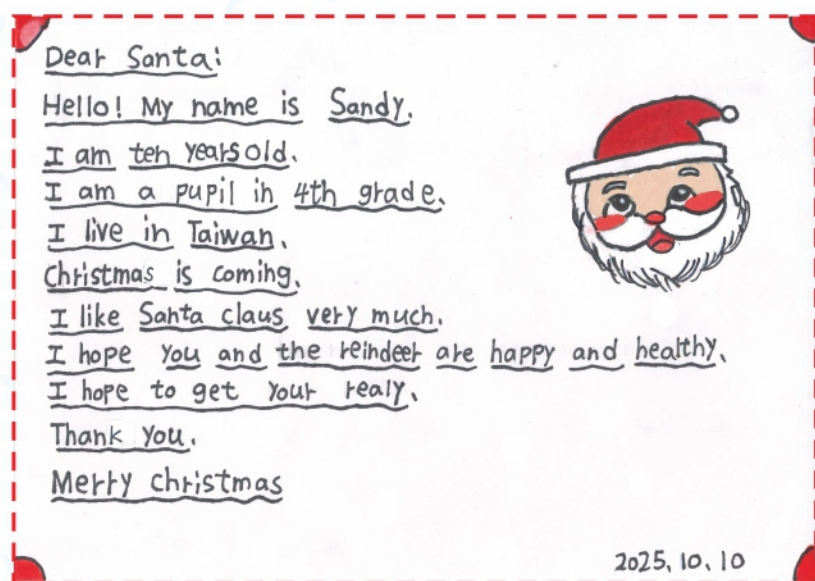 Dear Santa:
Hello! My name is Sandy.
I am ten years old.
I am a pupil in 4th grade.
I live in Taiwan.
Christmas is coming.
I like Santa claus very much.
I hope you and the reindeer are happy and healthy.
I hope to get your realy.
Thank you.
Merry christmas
2025.10.10